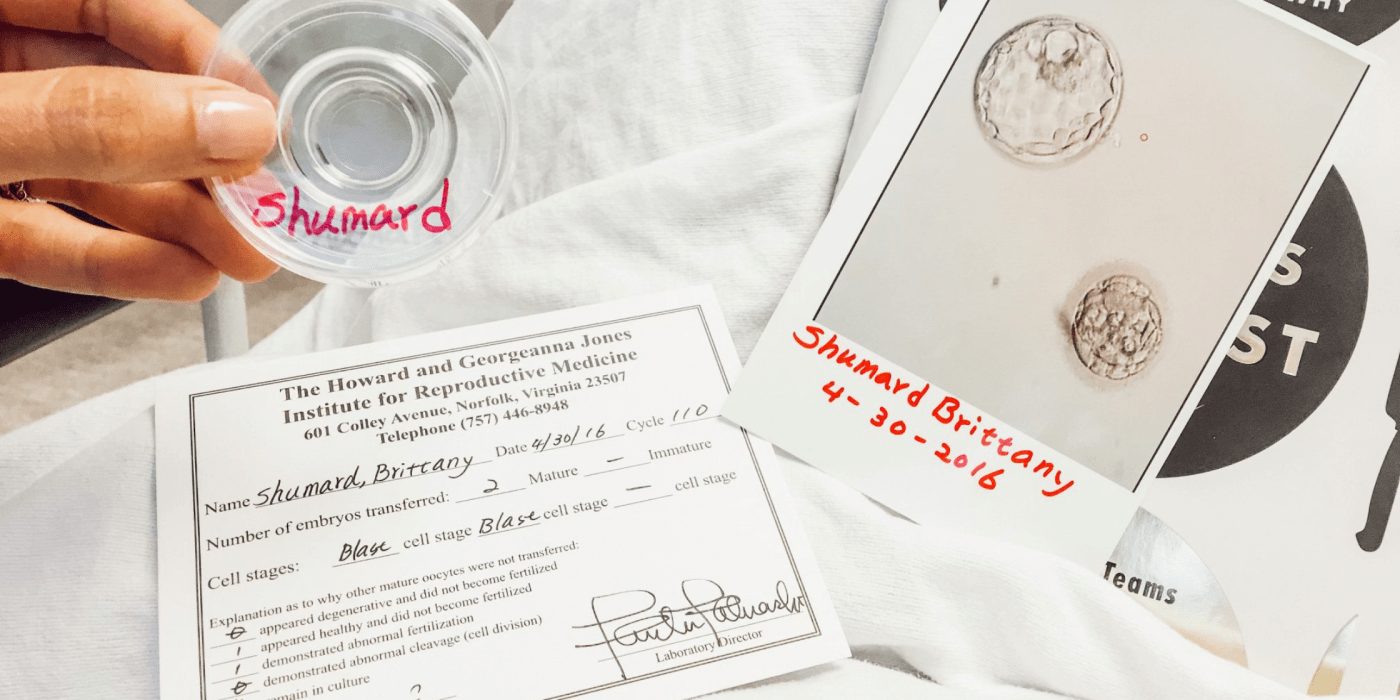 Shumard
The Howard and Georgeanna Jones
Institute for Reproductive Medicine
601 Colley Avenue, Norfolk, Virginia 23507
Telephone (757) 446-8948
Name Shumard, Brittany Date 4/30/16 Cycle 110
Number of embryos transferred: 2 Mature — Immature
Cell stages: Blast cell stage Blast cell stage — cell stage
Explanation as to why other mature oocytes were not transferred:
0 appeared degenerative and did not become fertilized
1 appeared healthy and did not become fertilized
1 demonstrated abnormal fertilization
0 demonstrated abnormal cleavage (cell division)
in culture
Laboratory Director
Shumard Brittany
4-30-2016
S
ST
Teams